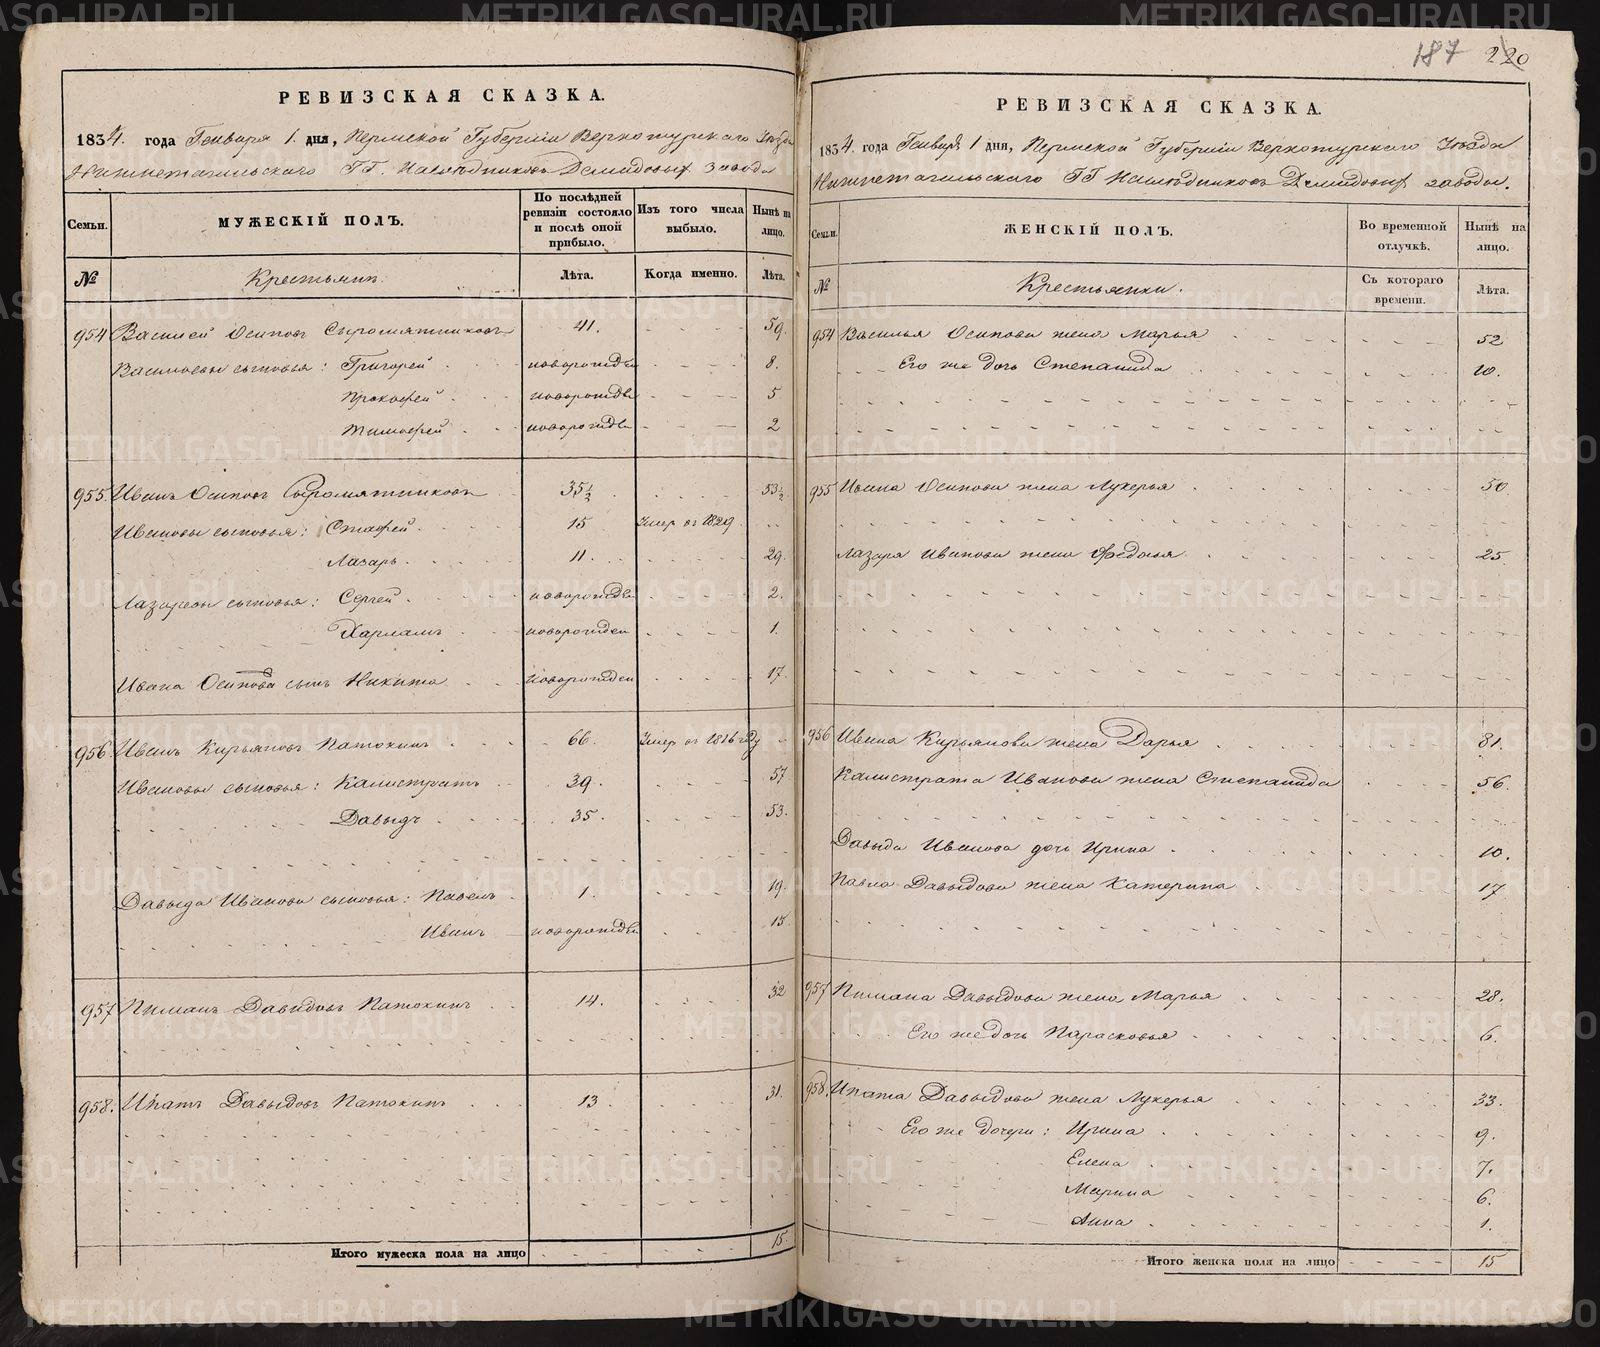 187 220
РЕВИЗСКАЯ СКАЗКА.
1834. года Генваря 1. дня, Пермской Губерніи Верхотурскаго Уѣзда
Нижнетагильскаго ГГ. Наслѣдниковъ Демидовыхъ завода
Семьи.
МУЖЕСКІЙ ПОЛЪ.
По послѣдней ревизіи состояло и послѣ оной прибыло.
Изъ того числа выбыло.
Нынѣ на лицо.
№
Крестьяне.
Лѣта.
Когда именно.
Лѣта.
954 Василей Осиповъ Сыромятниковъ 41. 59.
Васильевы сыновья: Григорей новорожден 8.
Прокофей новорожден 5
Тимофей новорожден 2
955. Иванъ Осиповъ Сыромятниковъ 35½ 53½
Ивановы сыновья: Стафей 15 Умер въ 1829
Лазарь 11. 29.
Лазаревы сыновья: Сергей новорожден 2.
Харламъ новорожден 1.
Ивана Осипова сынъ Никита новорожден 17.
956 Иванъ Кирьяновъ Патокинъ 66. Умер въ 1816 году
Ивановы сыновья: Калистратъ 39. 57
Давыдъ 35. 53.
Давыда Иванова сыновья: Павелъ 1. 19.
Иванъ новорожден 15
957 Пиманъ Давидовъ Патокинъ 14. 32
958. Ипатъ Давыдовъ Патокинъ 13 31.
Итого мужеска пола на лицо 15.
РЕВИЗСКАЯ СКАЗКА.
1834. года Генваря 1 дня, Пермской Губерніи Верхотурскаго Уѣзда
Нижнетагильскаго ГГ Наслѣдниковъ Демидовыхъ заводы.
Семьи.
ЖЕНСКІЙ ПОЛЪ.
Во временной отлучкѣ.
Нынѣ на лицо.
№
Крестьянки.
Съ котораго времени.
Лѣта.
954 Василья Осипова жена Марья 52
Его же дочь Степанида 10.
955 Ивана Осипова жена Лукерья 50.
Лазаря Иванова жена Федосья 25.
956 Ивана Кирьянова жена Дарья 81.
Калистрата Иванова жена Степанида 56.
Давыда Иванова дочь Ирина 10.
Павла Давыдова жена Катерина 17
957 Пимана Давыдова жена Марья 28.
Его же дочь Парасковья 6.
958. Ипата Давыдова жена Лукерья 33.
Его же дочери: Ирина 9.
Елена 7.
Марина 6.
Анна 1.
Итого женска пола на лицо 15
METRIKI.GASO-URAL.RU